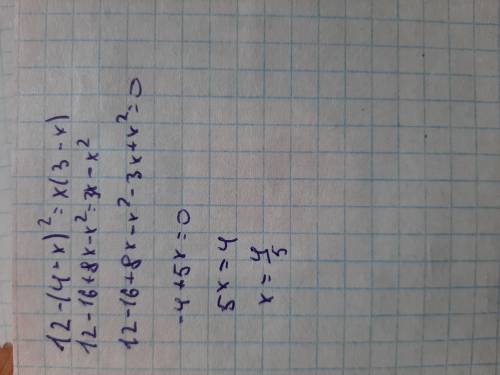 12-(4-x)²=x(3-x)
12-16+8x-x²=3x-x²
12-16+8x-x²-3x+x²=0
-4+5x=0
5x=4
x=4/5